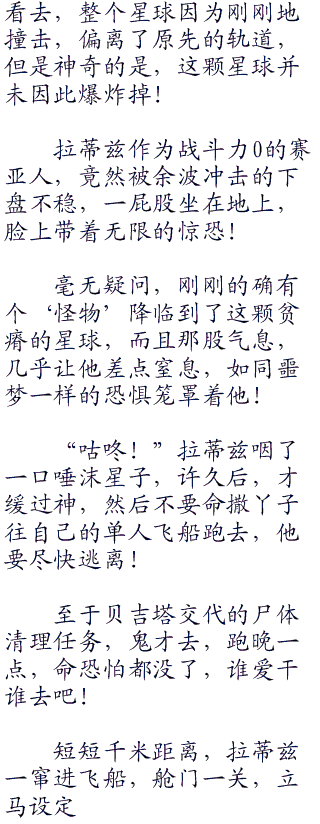 看去，整个星球因为刚刚地
撞击，偏离了原先的轨道，
但是神奇的是，这颗星球并
未因此爆炸掉！
拉蒂兹作为战斗力0的赛
亚人，竟然被余波冲击的下
盘不稳，一屁股坐在地上，
脸上带着无限的惊恐！
毫无疑问，刚刚的确有
个‘怪物’降临到了这颗贫
瘠的星球，而且那股气息，
几乎让他差点窒息，如同噩
梦一样的恐惧笼罩着他！
“咕咚！”拉蒂兹咽了
一口唾沫星子，许久后，才
缓过神，然后不要命撒丫子
往自己的单人飞船跑去，他
要尽快逃离！
至于贝吉塔交代的尸体
清理任务，鬼才去，跑晚一
点，命恐怕都没了，谁爱干
谁去吧！
短短千米距离，拉蒂兹
一窜进飞船，舱门一关，立
马设定